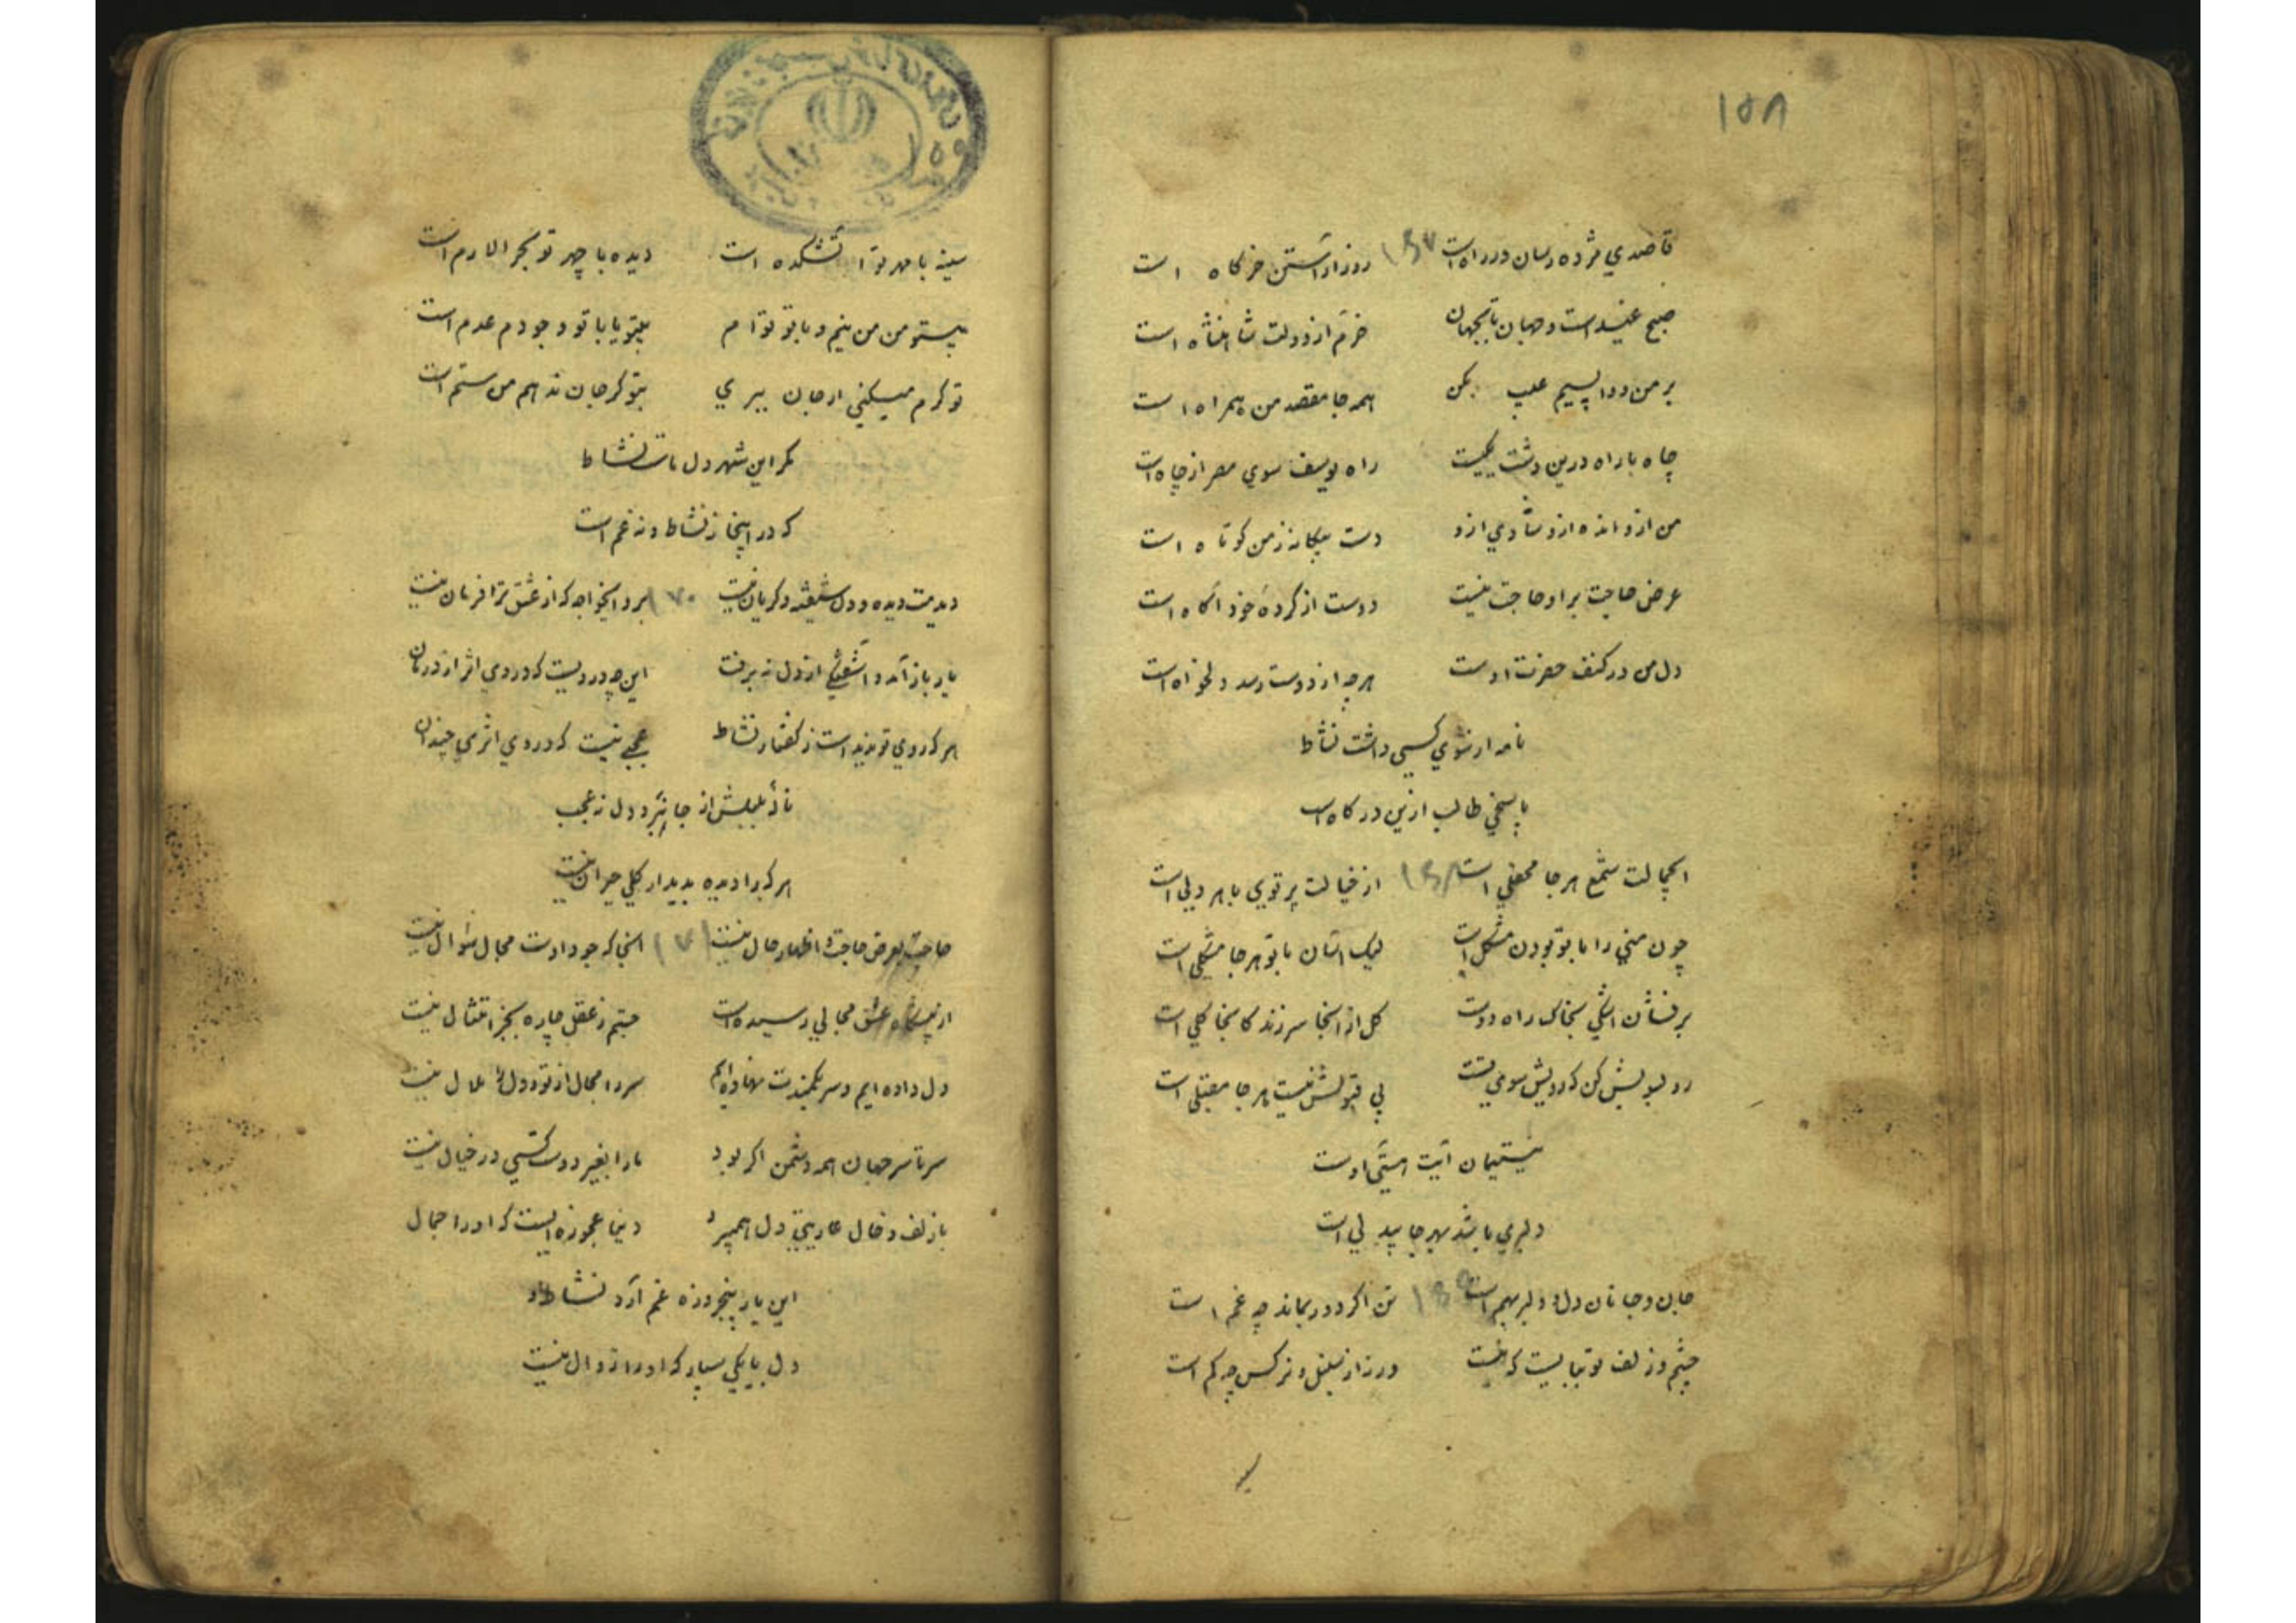 ۱۵۸
قاصدي مژده رسان در راه است ۱۶۷ روز آراستن خرگاه است
صبح عیداست و جهان تا بجهان خرم از دولت شاهنشاه است
بر من و واپسیم عیب مکن همه جا مقصد من همراه است
چاه با راه درین دشت یکیست راه یوسف سوي مصر از چاه است
من ازو انده ازو شادي ازو دست بیکانه ز من کوتاه است
عرض حاجت بر او حاجت نیست دوست از کردهٔ خود آکاه است
دل من در کنف حضرت اوست هر چه از دوست رسد دلخواه است
نامه از سوي کسی داشت نشاط
پاسخی طالب ازین درکاه است
ای جمالت شمع هر جا محفلی است ۱۶۸ از خیالت پرتوي با هر دلی است
چون منی را با تو بودن مشکل است لیک آسان با تو هر جا مشکلی است
برفشان اشکی بخاک راه دوست کل از آنجا سر زند کانجا کلی است
رو قبولش کن که رویش سوي تست بي قبولش نیست هر جا مقبلی است
نیستیمان آیت هستی اوست
دلبري باشد بهر جا بیدلی است
جان و جانان دل و دلبر بهم است ۱۶۹ تن اکر دور بماند چه غم است
چشم و زلف تو بیایست که نیست ورنه از سنبل و نرکس چه کم است
سینه
سینه با مهر تو آتشکده است دیده با چهر تو بحر ارم است
بیتو من من نیم و با تو توام بیتو یا با تو وجودم عدم است
تو کرم میکنی ار جان ببري بتو کر جان ندهم من ستم است
مکر این شهر دل ماست نشاط
که در اینجا نه نشاط و نه غم است
دیدمت دیده و دل شیفته و کریان نیست ۱۷۰ برو ایخواجه که از عشق ترا فرمان نیست
یار باز آمد و آشفتگی از دل نه برفت این چه دردیست که در وي اثر از درمان
هر که روي تو ندیداست ز کفتار نشاط عجبی نیست که در وي اثري چندان
نالهٔ بلبلش از جا نبرد دل نه عجب
هر کرا دیده بدیدار کلی حیران نیست
حاجت بعرض حاجت و اظهار حال نیست ۱۷۱ آنجا که جود اوست مجال سؤال نیست
از پیشکاه عشق مثالی رسیده است جستم ز عقل چاره بجز امتثال نیست
دل داده ایم و سر بکمندت نهاده ایم سر را مجال از تو و دل را ملال نیست
سرتاسر جهان همه دشمن اکر بود ما را بغیر دوست کسی در خیال نیست
با زلف و خال عاریتی دل همیبرد دنیا عجوزه ایست که او را جمال
این یار پنجروزه غم آرد نشاط
دل با یکی سپار که او را زوال نیست